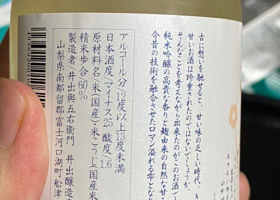 古に想いを馳せると、甘い味の美しい時代、き
甘いお酒は珍重されたのではないでしょうか。
そんなことを考えながら出来たのがこのお酒で
純米吟醸の高貴な香りと麹由来の自然な甘
今昔の技術を融合させたロマン溢れる雫とな
アルコール分/12度以上13度未満
日本酒度/マイナス25 酸度/1.6
原材料名/米(国産)・米こうじ(国産米
精米歩合/60%
製造者 井出與五右衛門 井出醸造
山梨県南都留郡富士河口湖町船津